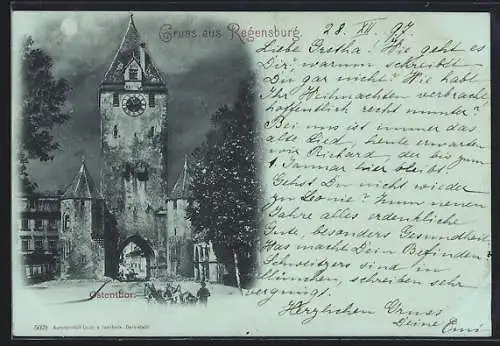 Gruss aus Regensburg.
28. XII. 97.
Liebe Gretha! Wie geht es
Dir, warum schreibst
Du gar nicht? Wie habt
Ihr Weihnachten verbracht,
hoffentlich recht munter?
Bei uns ist immer das
alte Lied, heute erwarten
wir Richard, der bis zum
1. Januar hier bleibt.
Gehst Du nicht wieder
zu Leonie? Zum neuen
Jahre alles erdenkliche
Gute, besonders Gesundheit.
Was macht Dein Befinden?
Schweitzers sind in
München, schreiben sehr
vergnügt.
Herzlichen Gruss
Deine Emi
Ostenthor.
5028 Kunstanstalt Lautz & Isenbeck, Darmstadt